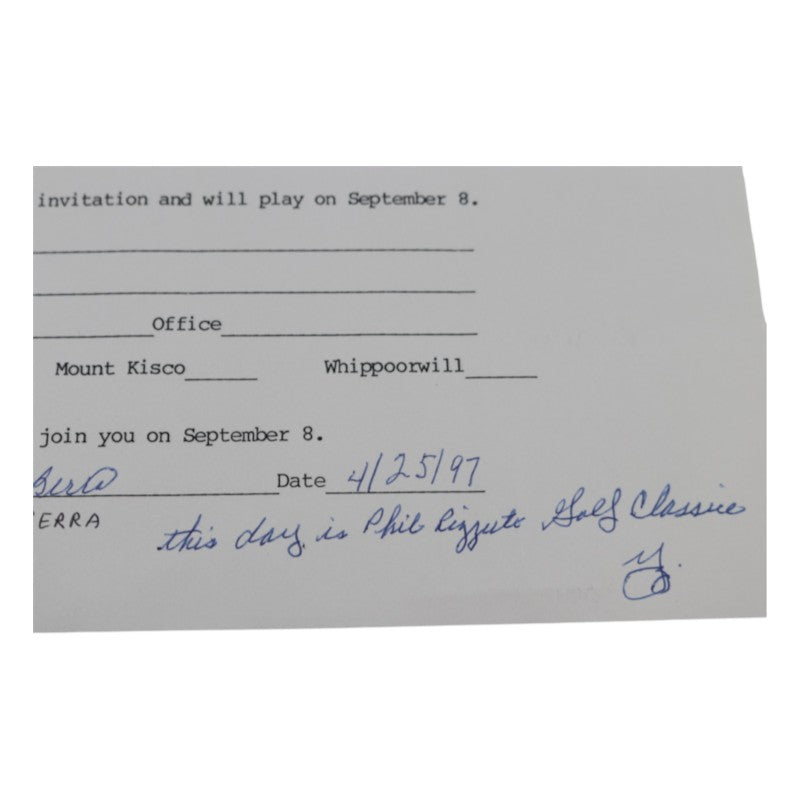 invitation and will play on September 8.
Office
Mount Kisco Whippoorwill
join you on September 8.
Berra Date 4/25/97
ERRA
this day is Phil Rizzuto Golf Classic
Y.